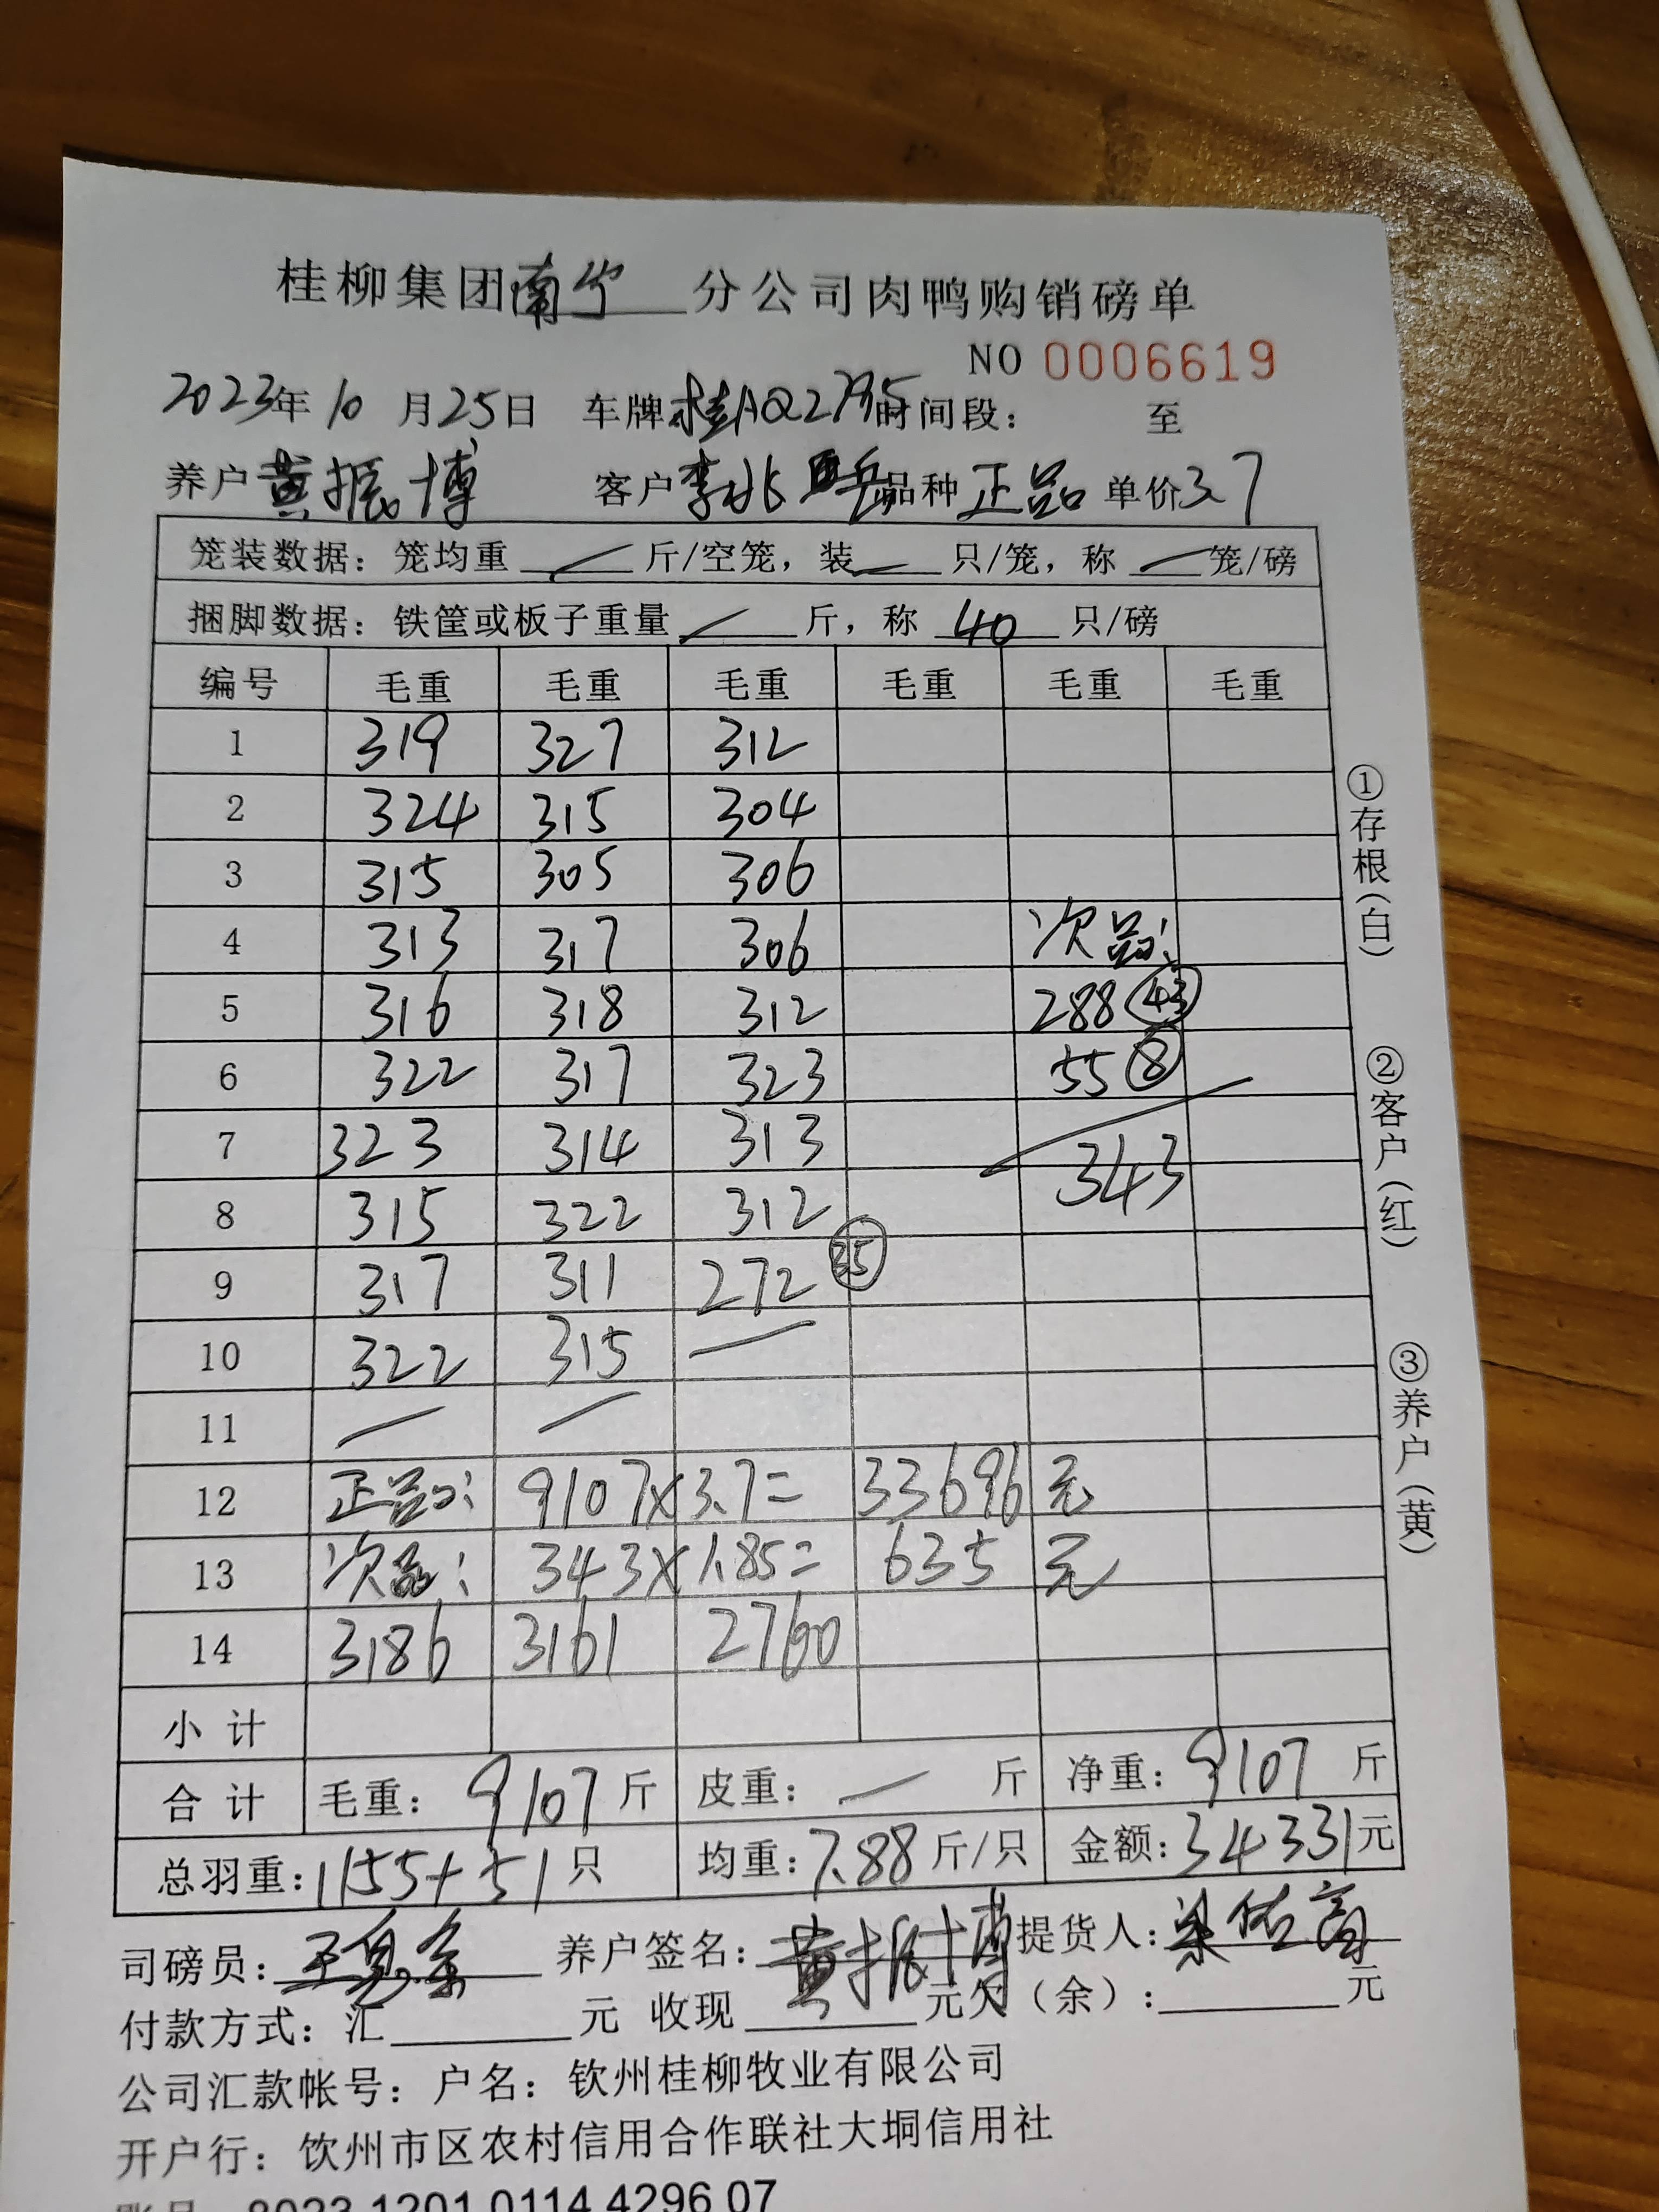 桂柳集团南宁分公司肉鸭购销磅单
NO 0006619
2023年10月25日 车牌桂AQ2795时间段： 至
养户黄振博 客户李兆 品种正品 单价3.7
笼装数据：笼均重 / 斤/空笼，装 / 只/笼，称 / 笼/磅
捆脚数据：铁筐或板子重量 / 斤，称 40 只/磅
编号 毛重 毛重 毛重 毛重 毛重 毛重
1 319 327 312
2 324 315 304
3 315 305 306
4 313 317 306 次品：
5 316 318 312 288 43
6 322 317 323 55 8
7 323 314 313 343
8 315 322 312
9 317 311 272 35
10 322 315 /
11 / /
12 正品： 9107×3.7= 33696 元
13 次品： 343×1.85= 635 元
14 3186 3161 2760
小计
合计 毛重：9107斤 皮重：/ 斤 净重：9107斤
总羽重：1155+51只 均重：7.88斤/只 金额：34331元
司磅员： 养户签名：黄振博 提货人：梁佑富
付款方式：汇 元 收现 元欠（余）： 元
公司汇款帐号：户名：钦州桂柳牧业有限公司
开户行：饮州市区农村信用合作联社大垌信用社
账号 8023 1201 0114 4296 07
①存根（白）
②客户（红）
③养户（黄）